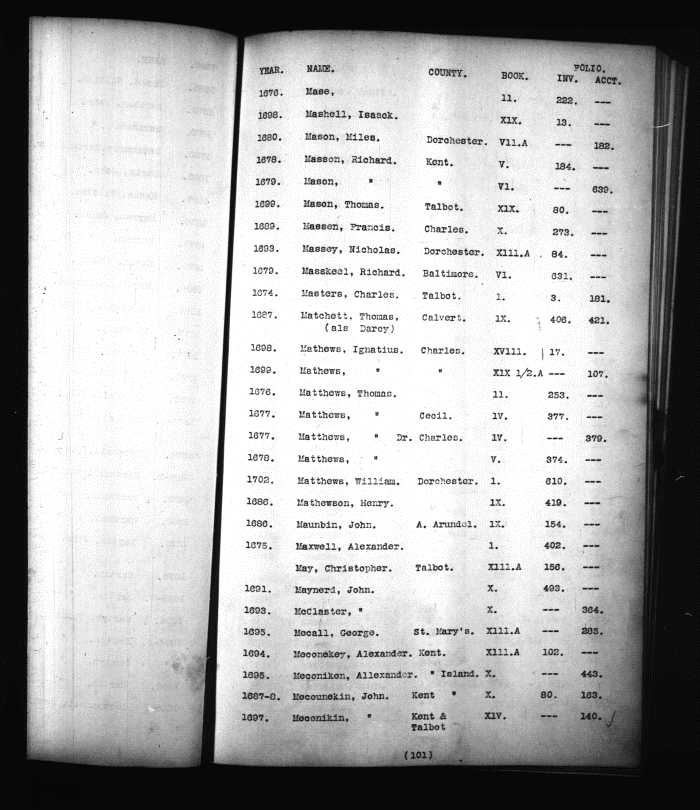 FOLIO.
YEAR. NAME. COUNTY. BOOK. INV. ACCT.
1676. Mase, 11. 222. ---
1698. Mashell, Isaack. X1X. 13. ---
1680. Mason, Miles. Dorchester. V11.A --- 182.
1678. Masson, Richard. Kent. V. 184. ---
1679. Mason, " " V1. --- 639.
1699. Mason, Thomas. Talbot. X1X. 80. ---
1689. Massen, Francis. Charles. X. 273. ---
1693. Massey, Nicholas. Dorchester. X111.A 84. ---
1679. Masskeel, Richard. Baltimore. V1. 631. ---
1674. Masters, Charles. Talbot. 1. 3. 181.
1687. Matchett, Thomas, Calvert. 1X. 406. 421.
(als Darcy)
1698. Mathews, Ignatius. Charles. XV111. 17. ---
1699. Mathews, " " X1X 1/2.A --- 107.
1676. Matthews, Thomas. 11. 253. ---
1677. Matthews, " Cecil. 1V. 377. ---
1677. Matthews, " Dr. Charles. 1V. --- 379.
1678. Matthews, " V. 374. ---
1702. Matthews, William. Dorchester. 1. 610. ---
1686. Mathewson, Henry. 1X. 419. ---
1686. Maunbin, John. A. Arundel. 1X. 154. ---
1675. Maxwell, Alexander. 1. 402. ---
May, Christopher. Talbot. X111.A 156. ---
1691. Maynerd, John. X. 493. ---
1693. McClaster, " X. --- 364.
1695. Mecall, George. St. Mary's. X111.A --- 285.
1694. Meconekey, Alexander. Kent. X111.A 102. ---
1695. Meconiken, Allexander. " Island. X. --- 443.
1687-8. Mecounekin, John. Kent " X. 80. 163.
1697. Meconikin, " Kent & X1V. --- 140.
Talbot
(101)